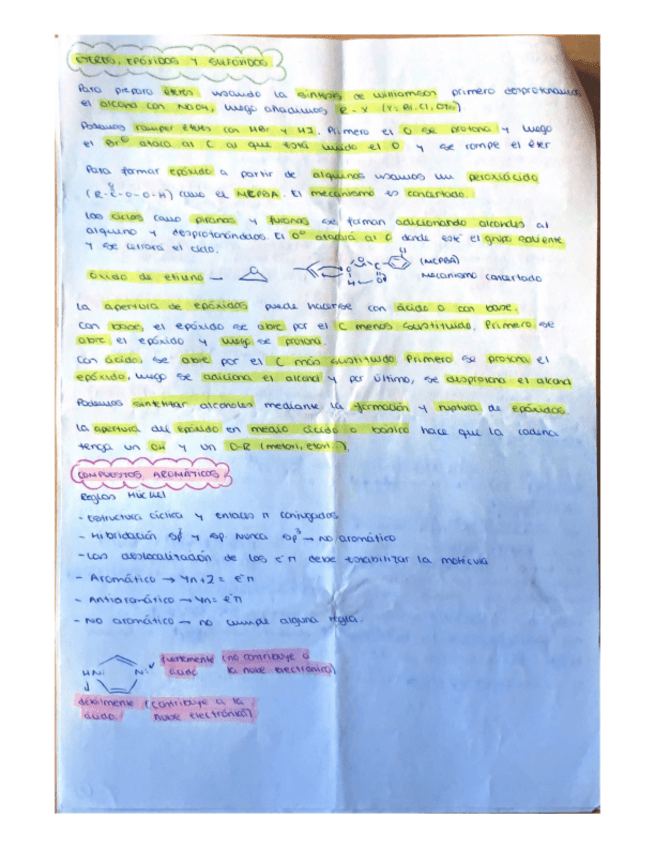 ETERES, EPÓXIDOS Y SULFÓXIDOS
Para preparar éteres usando la síntesis de Williamson primero desprotonamos
el alcohol con NaOH, luego añadimos R-X (X= Br, Cl, OTs)
Podemos romper éteres con HBr y HI. Primero el O se protona y luego
el Br⊖ ataca al C al que está unido el O y se rompe el éter
Para formar epóxido a partir de alquenos usamos un peroxiácido
(R-C-O-O-H) como el MCPBA. El mecanismo es concertado.
O
Los ciclos como piranos y furanos se forman adicionando alcoholes al
alquino y desprotonándolos. El O⊖ atacará al C donde esté el grupo saliente
y se cerrará el ciclo.
Óxido de etileno —
O
O
O
C
H
O
Cl
(MCPBA)
Mecanismo concertado
La apertura de epóxidos puede hacerse con ácido o con base.
Con base, el epóxido se abre por el C menos sustituido. Primero se
abre el epóxido y luego se protona.
Con ácido, se abre por el C más sustituido. Primero se protona el
epóxido, luego se adiciona el alcohol y por último, se desprotona el alcohol
Podemos sintetizar alcoholes mediante la formación y ruptura de epóxidos
La apertura del epóxido en medio ácido o básico hace que la cadena
tenga un OH y un O-R (metoxi, etoxi...)
COMPUESTOS AROMÁTICOS
Reglas Hückel
- Estructura cíclica y enlaces π conjugados
- Hibridación sp² y sp. Nunca sp³ → no aromático
- Las deslocalización de los e⁻π debe estabilizar la molécula
- Aromático → 4n+2 = e⁻π
- Antiaromático → 4n = e⁻π
- No aromático → no cumple alguna regla.
HN
N
fuertemente (no contribuye a
ácido la nube electrónica)
débilmente (contribuye a la
ácido nube electrónica)